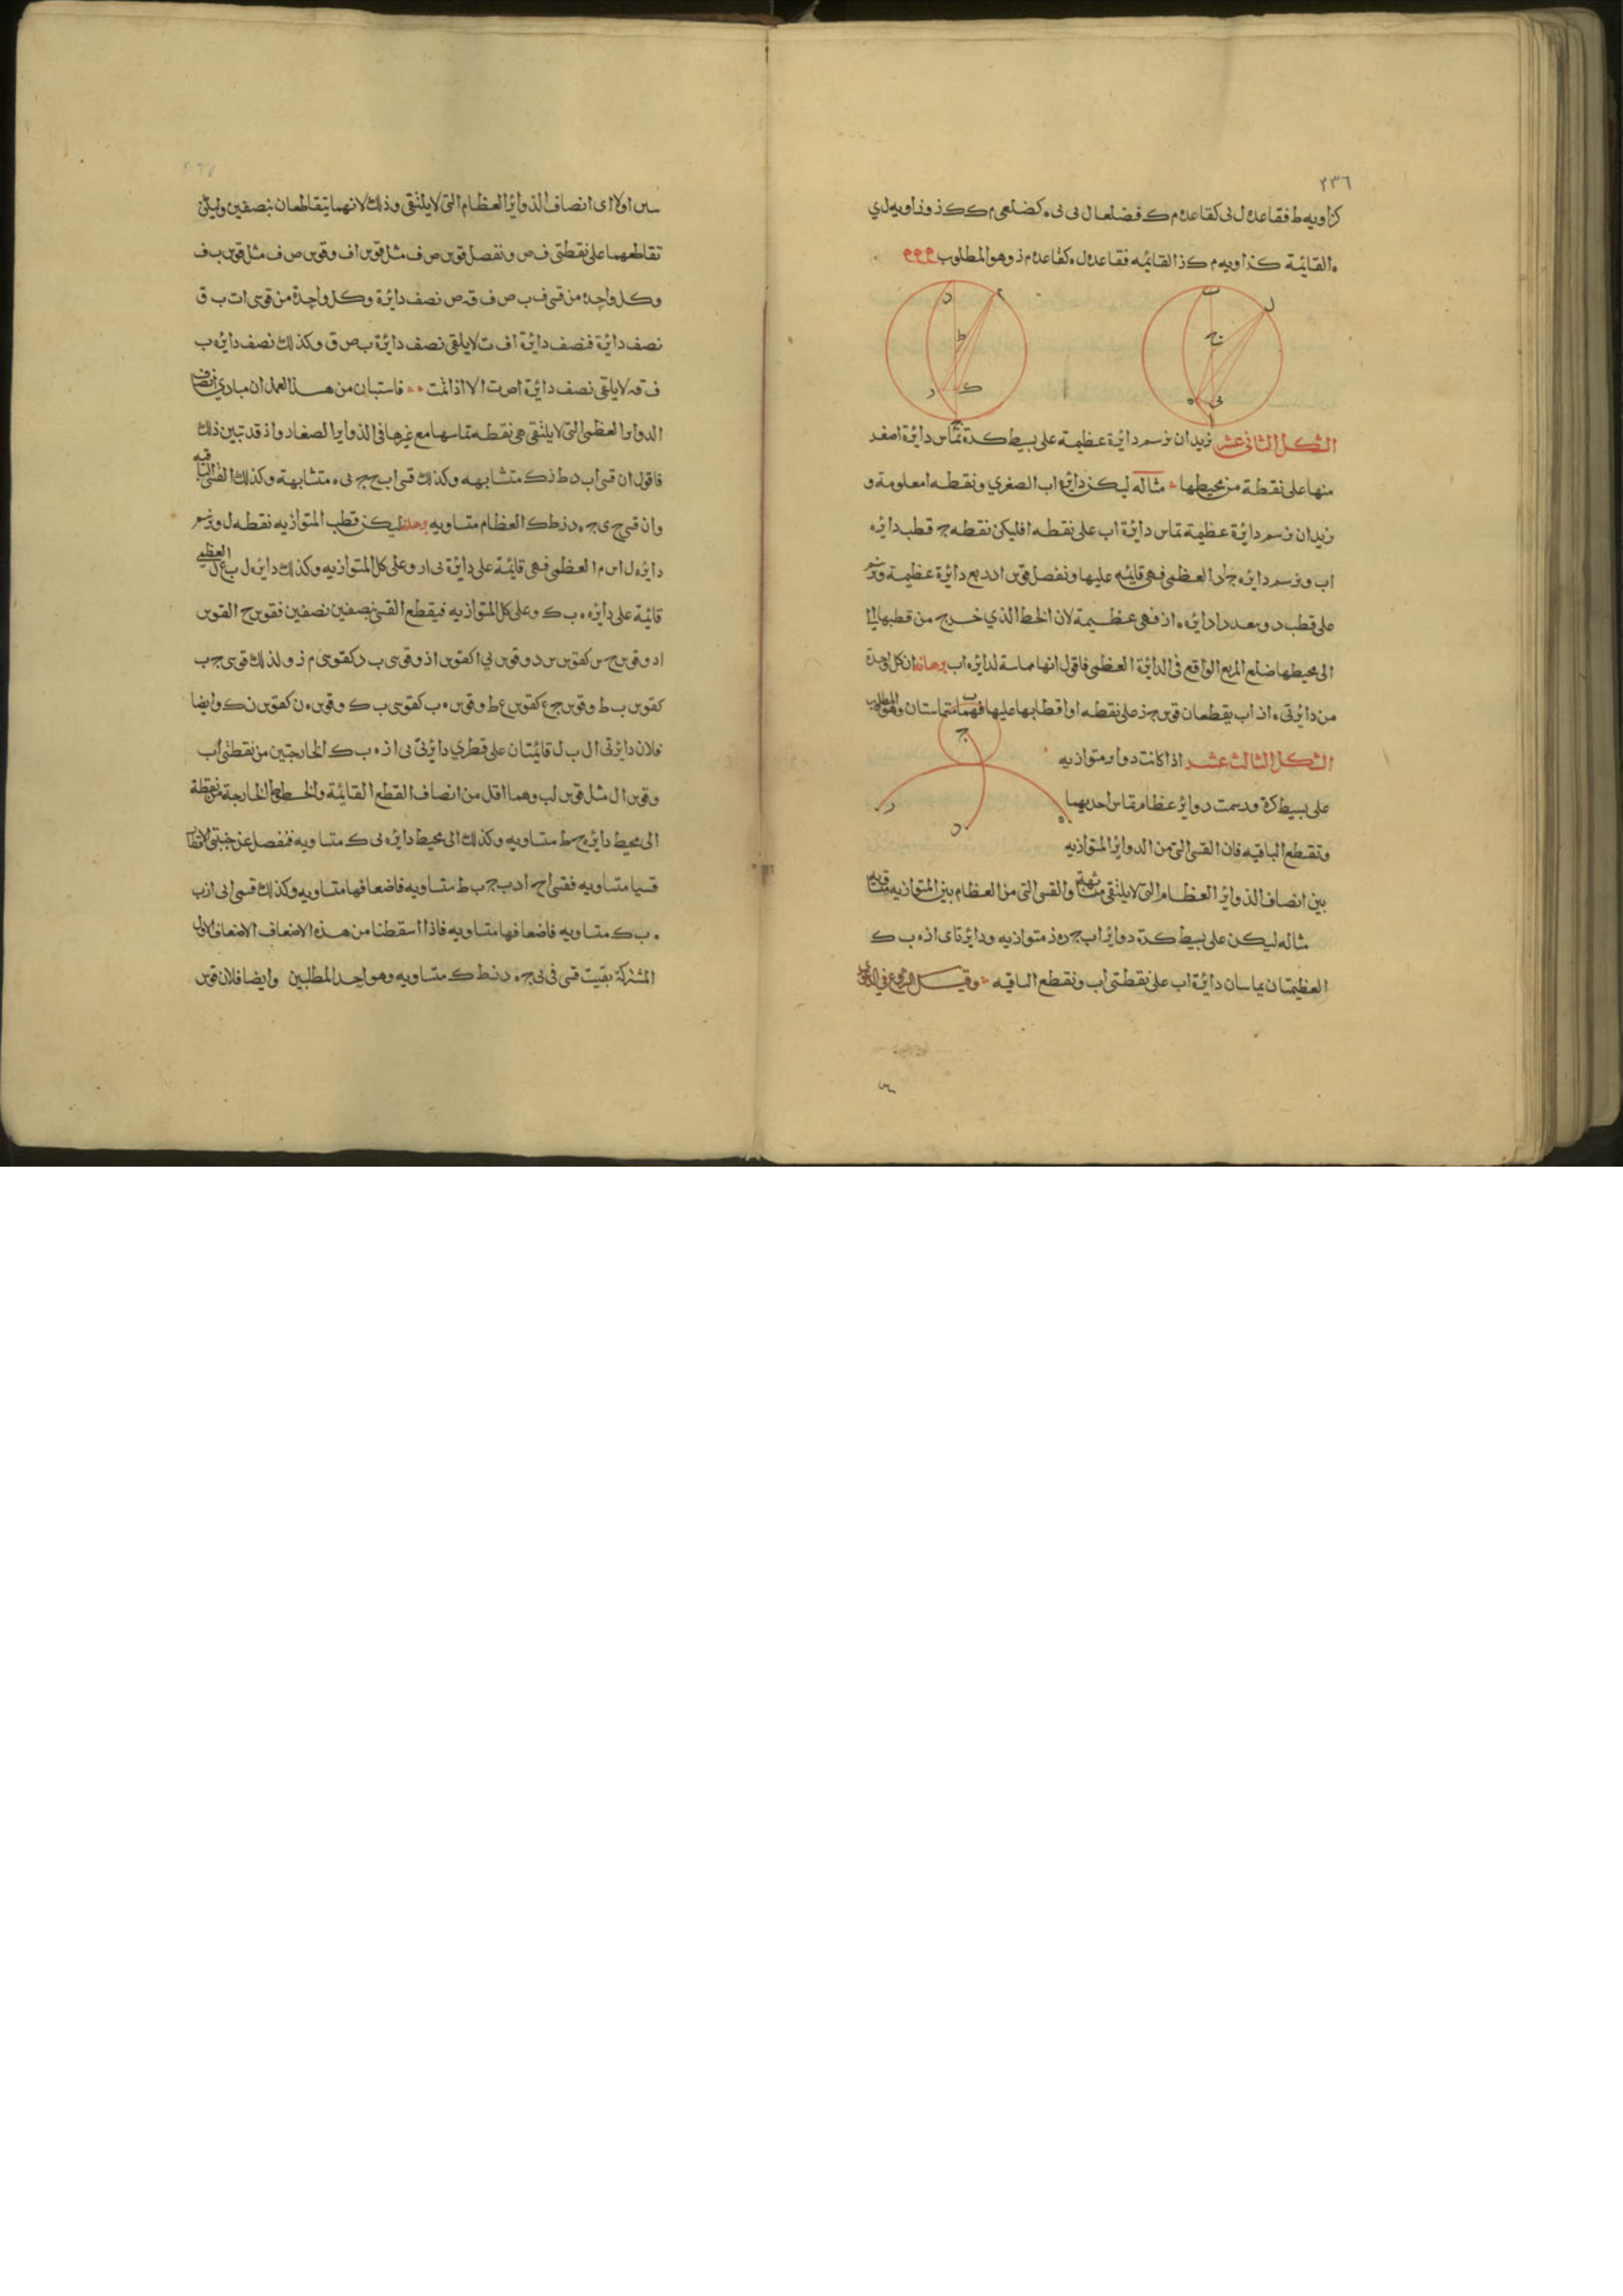 ٢٣٦
كزاويه ط فقاعدة ل ى كقاعدة م ك فضلعا ل ى ى ه كضلعى م ك ك ذ وزاويه ل ي
ه القايمة كزاويه م ك ز القايمه فقاعدة ل ه كقاعدة م ذ وهو المطلوب
الشكل الثانى عشر نريد ان نرسم دائرة عظيمة على بسيط كرة تماس دائرة اصغر
منها على نقطة من محيطها مثاله ليكن دائرة اب الصغري ونقطه ا معلومة و
نريد ان نرسم دائرة عظيمة تماس دائرة اب على نقطه ا فليكن نقطه ج قطب دائره
اب ونرسم دائره ج ا د العظمى فهى قايمه عليها ونفصل قوس ا د ربع دائرة عظيمة ونرسم
على قطب د وببعد د ا دائره ه ا ز فهى عظيمة لان الخط الذي خرج من قطبها
الى محيطها ضلع المربع الواقع فى الدايرة العظمى فاقول انها مماسة لدائره اب برهانه ان كل واحدة
من دائرتى ه ا ز اب يقطعان قوس ج د على نقطه ا واقطابها عليها فهما متماستان وهو المطلوب
الشكل الثالث عشر اذا كانت دواير متوازيه
على بسيط كرة ورسمت دوائر عظام تماس احديهما
وتقطع الباقيه فان القسى التى من الدوائر المتوازيه
بين انصاف الدوائر العظام التى لا يلتقى متشابهة والقسى التى من العظام بين المتوازيه متساويه
مثاله ليكن على بسيط كرة دوائر اب ج د ه ز متوازيه ودائرتا ى ا ز ه ب ك
العظيمتان يماسان دائرة اب على نقطتى اب ونقطع الباقيه وقبل الشروع فى الدعوى
سن اولا اى انصاف الدوائر العظام التى لا يلتقى وذلك لانهما يتقاطعان بنصفين وليكن
تقاطعهما على نقطتى ف ص ونفصل قوس ص ف مثل قوس ا ف وقوس ص ف مثل قوس ب ف
وكل واحدة من قسى ف ب ص ف قه ص نصف دائرة وكل واحدة من قوسى ا ت ب ق
نصف دائرة فنصف دائرة ا ف ت لا يلقى نصف دائرة ب ص ق وكذلك نصف دائره ب
ف قه لا يلقى نصف دائرة ا ص ت الا اذا اتمت فاستبان من هذا العمل ان مبادي انصاف
الدواير العظمى التى لا يلتقى هى نقطه تماسها مع غيرها فى الدواير الصغار واذ قد تبين ذلك
فاقول ان قسى اب د ط ز ك متشابهه وكذلك قسى اب ج ح ى ه متشابهة وكذلك القسى الباقيه
وان قسى ح ى ج ه د ز ط ك العظام متساويه برهانه ليكن قطب المتوازيه نقطه ل ونرسم
دائره ل ا س م العظمى فهى قايمة على دائرة ى ا ز وعلى كل المتوازيه وكذلك دايره ل ب ع ن العظمى
قائمة على دائره ه ب ك وعلى كل المتوازيه فيقطع القسى بنصفين نصفين فقوس ح ا لقوس
ا د وقوس ح س كقوس س د وقوس ى ا كقوس ا ز وقوس ى م كقوس م ز ولذلك قوس ج ب
كقوس ب ط وقوس ج ع كقوس ع ط وقوس ه ب كقوس ب ك وقوس ه ن كقوس ن ك وايضا
فلان دائرتى ا ل ب ل قائمتان على قطري دائرتى ى ا ز ه ب ك الخارجتين من نقطتى اب
وقوس ا ل مثل قوس ل ب وهما اقل من انصاف القطع القايمة والخطوط الخارجة من نقطة
الى محيط دايره ج ط متساويه وكذلك الى محيط دائره ى ك متساويه فنفصل عن جنبتى الاقطار
قسيا متساويه فقسى ا ح ا د ب ج ب ط متساويه فاضعافها متساويه وكذلك قسى ا ى ا ز ب
ه ب ك متساويه فاضعافها متساويه فاذا اسقطنا من هذه الاضعاف الاضعاف الاول
المشتركة بقيت قسى ح ى ج ه د ز ط ك متساويه وهو احد المطلبين وايضا فلان قوس